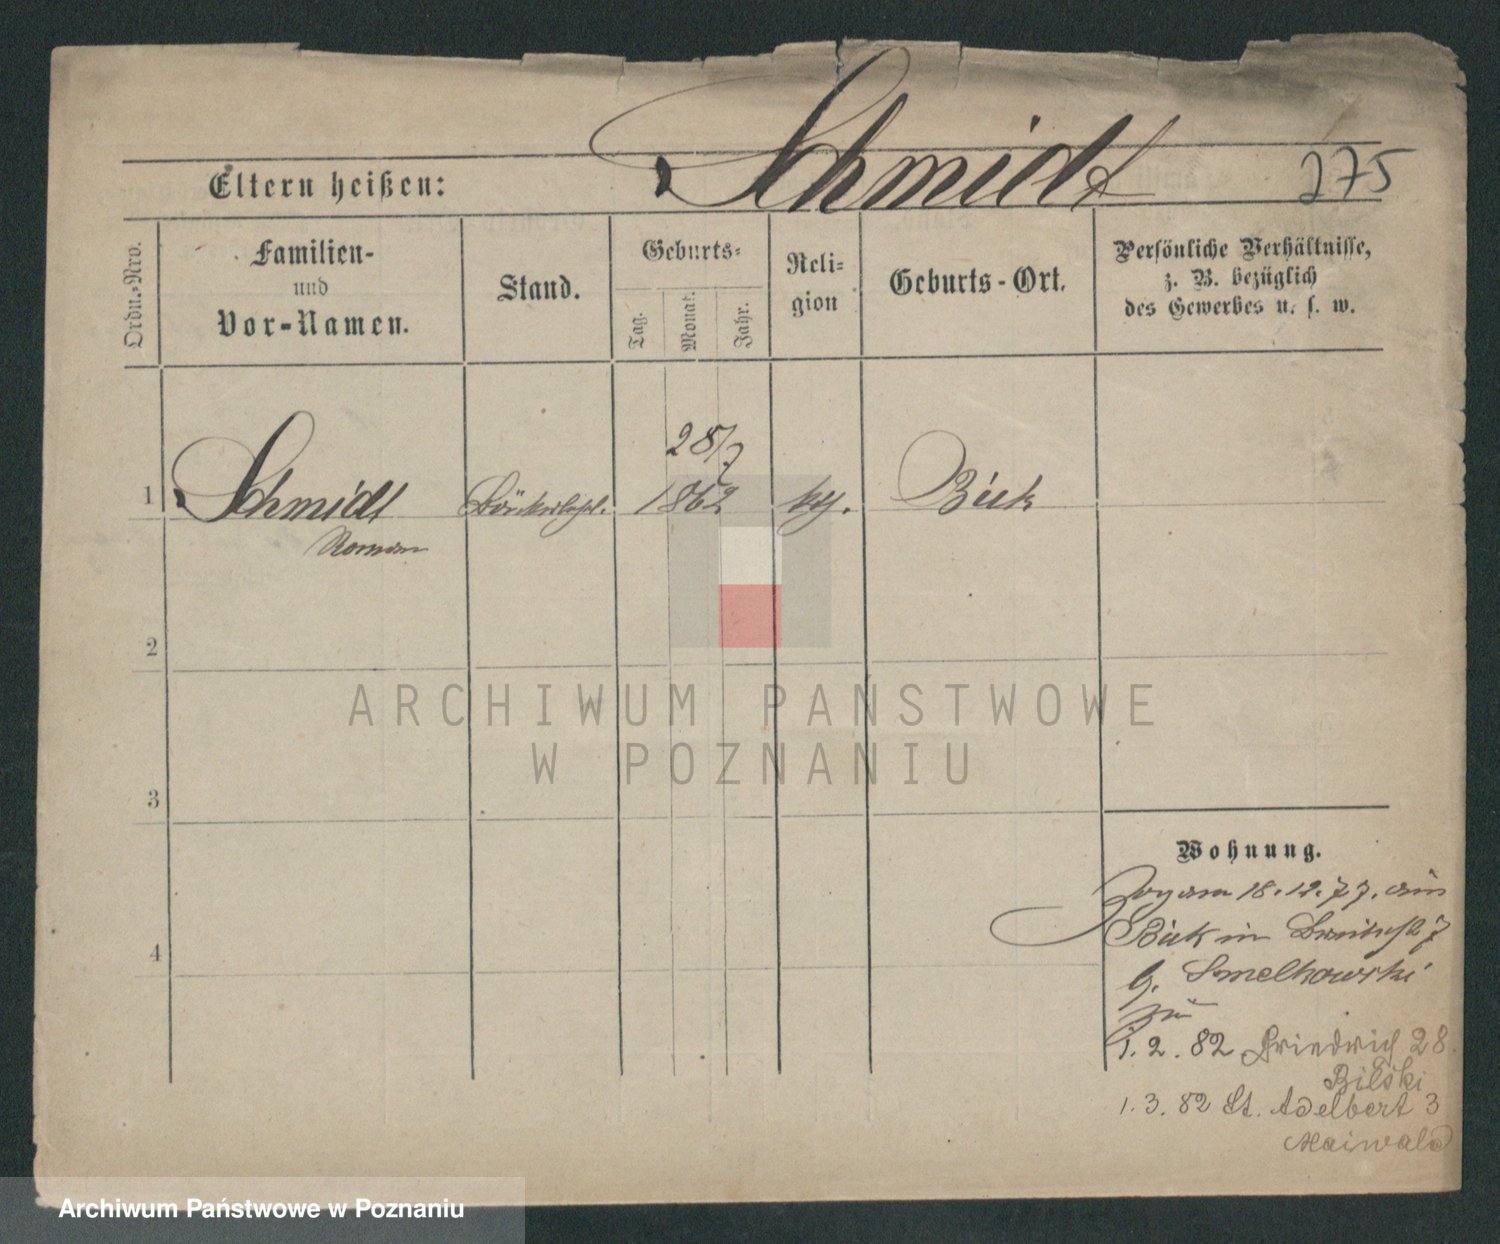 Schmidt
275
Eltern heißen:
Ordn.-Nro.
Familien-
und
Vor-Namen.
Stand.
Geburts-
Tag.
Monat.
Jahr.
Reli-
gion
Geburts-Ort.
Persönliche Verhältnisse,
z. B. bezüglich
des Gewerbes u. s. w.
28/7
1 Schmidt Bäckerlehrl. 1862 kth. Buk
Roman
2
3
4
ARCHIWUM PAŃSTWOWE
W POZNANIU
Wohnung.
Zog am 18.12.77. aus
Buk in 7
b. Smelkowski
zu
1.2.82 Friedrich 28
Bilski
1.3.82 St. Adelbert 3
Maiwald
Archiwum Państwowe w Poznaniu